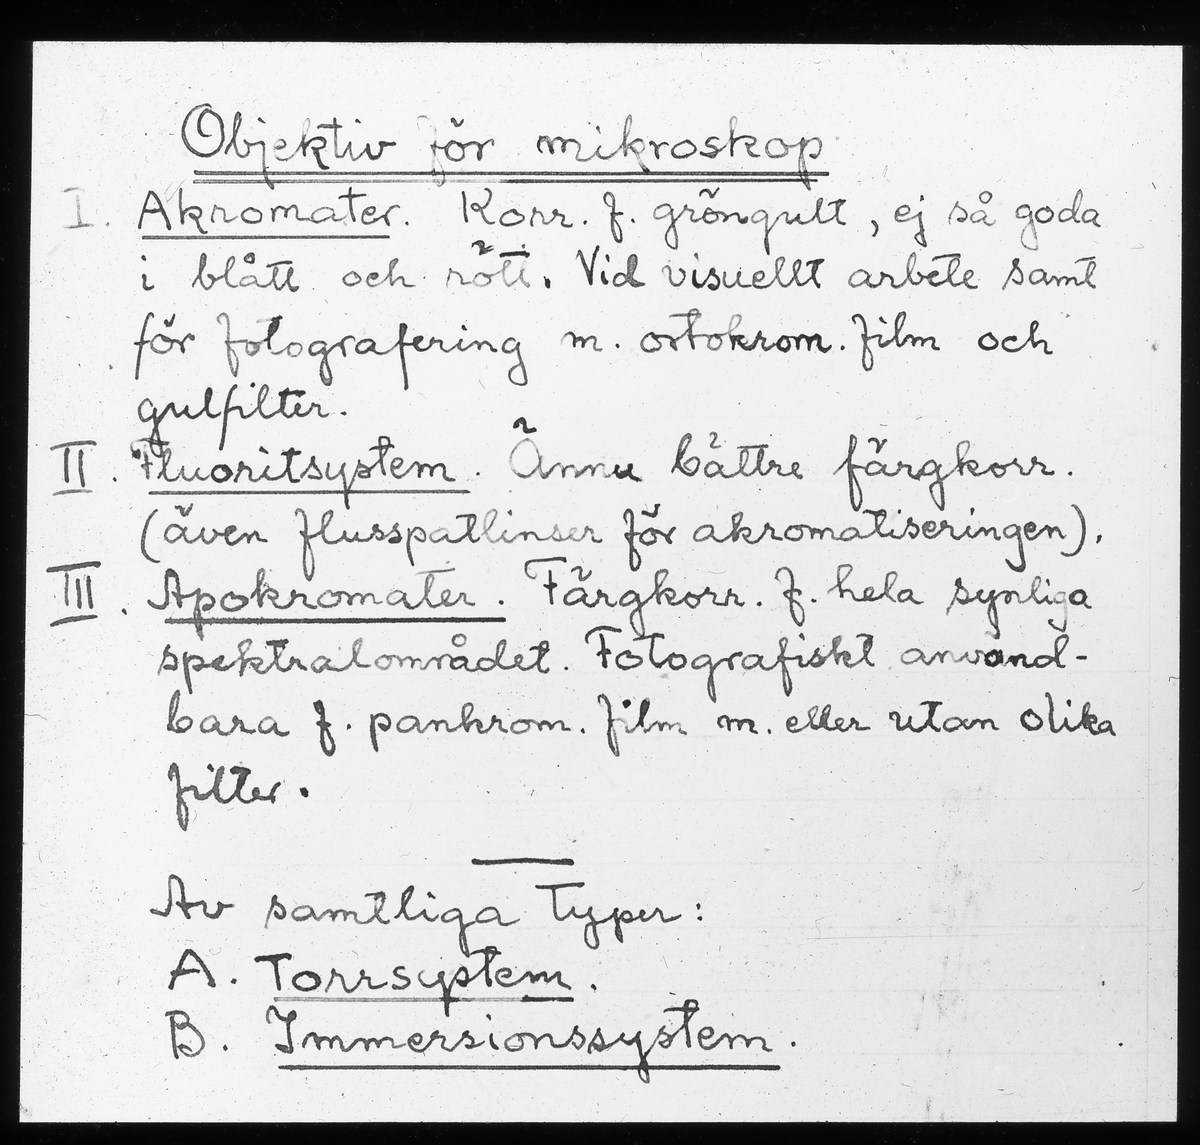 Objektiv för mikroskop
I. Akromater. Korr. f. gröngult, ej så goda
i blått och rött. Vid visuellt arbete samt
för fotografering m. ortokrom. film och
gulfilter.
II. Fluoritsystem. Ännu bättre färgkorr.
(även flusspatlinser för akromatiseringen).
III. Apokromater. Färgkorr. f. hela synliga
spektralområdet. Fotografiskt använd-
bara f. pankrom. film m. eller utan olika
filter.
Av samtliga typer:
A. Torrsystem.
B. Immersionssystem.